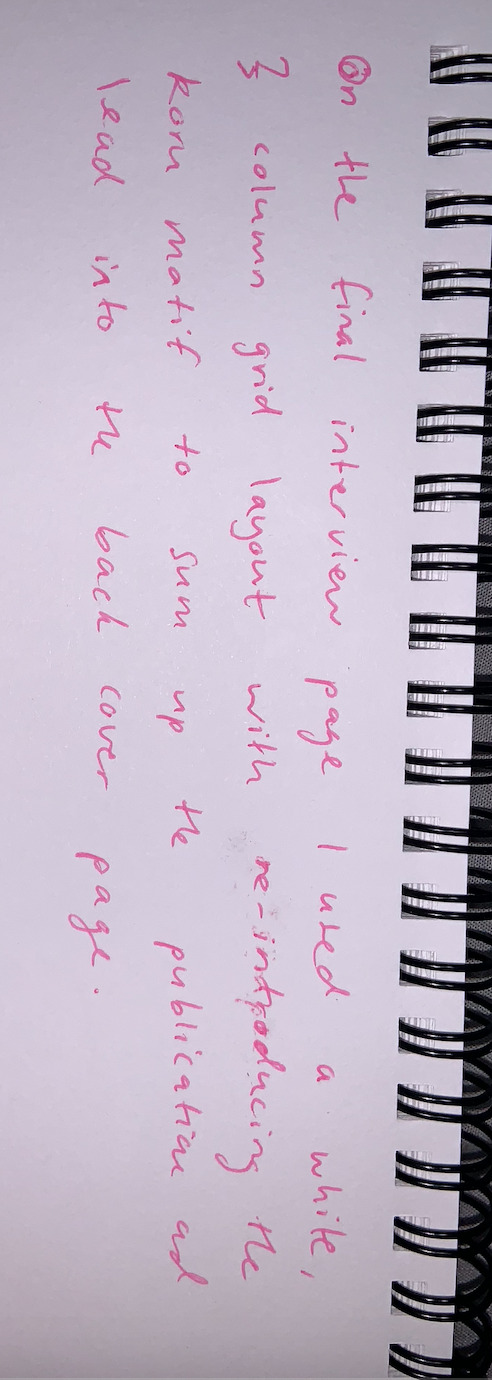 On the final interview page I used a white,
3 column grid layout with re-introducing the
Koru motif to sum up the publication ad
lead into the back cover page.